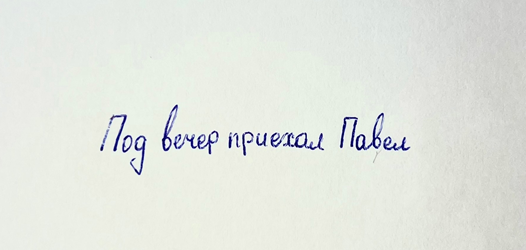 Под вечер приехал Павел